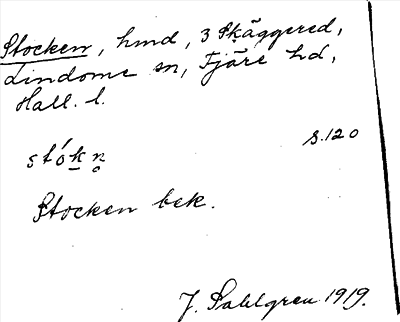 Stocken, hmd, 3 Skäggered,
Lindome sn, Fjäre hd,
Hall. l.
s.120
stók̠n̥
Stocken bek.
J. Sahlgren 1919.